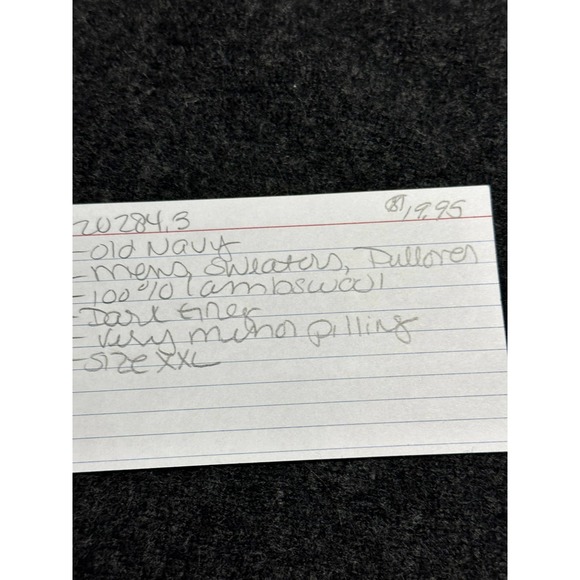 20284.3 $19.95
- Old Navy
- Mens, Sweaters, Pullover
- 100% lambswool
- Dark Grey
- Very minor pilling
- Size XXL